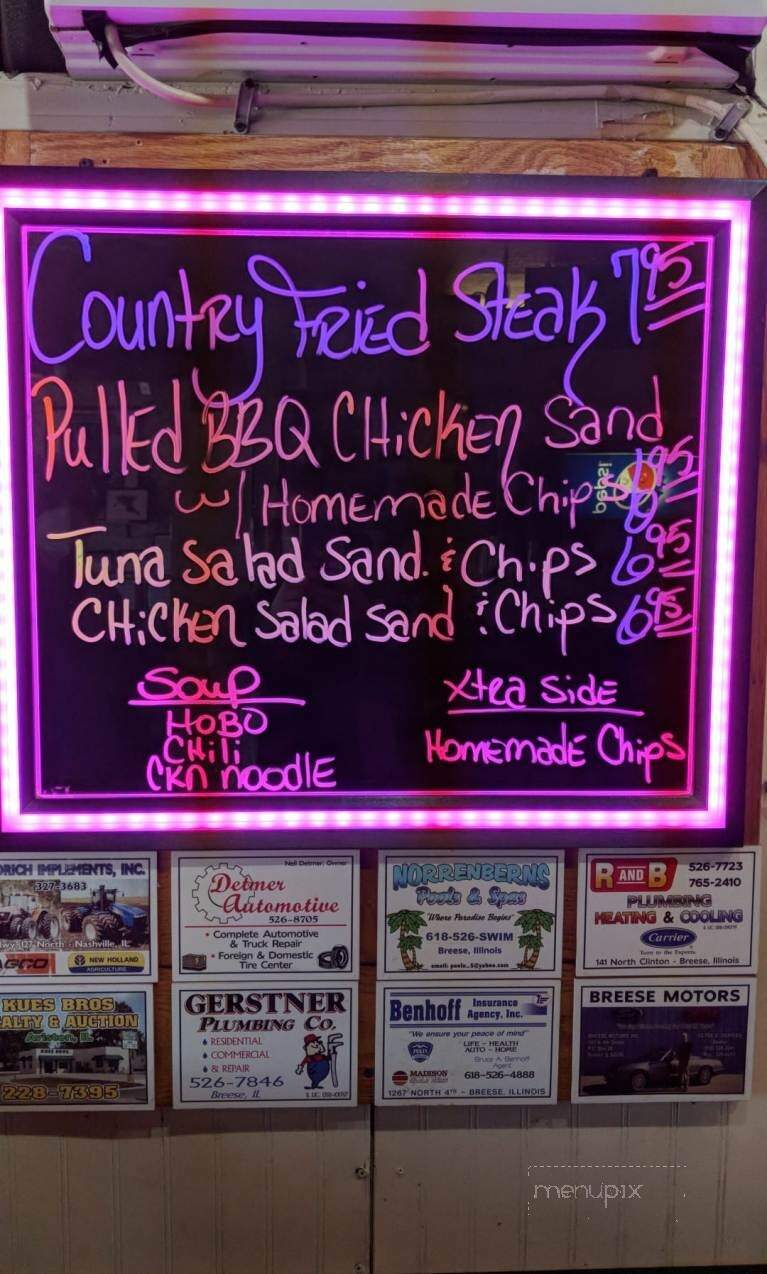 Country Fried Steak 7 95
Pulled BBQ Chicken Sand
w/ Homemade Chips 6 95
pepsi
Tuna Salad Sand. & Chips 6 95
Chicken Salad Sand & Chips 6 95
Soup
Hobo
Chili
Ckn Noodle
Xtra Side
Homemade Chips
DRICH IMPLEMENTS, INC.
327-3683
Hwy 127 North - Nashville, IL
AGCO
NEW HOLLAND
AGRICULTURE
Neil Detmer, Owner
Detmer
Automotive
526-8705
• Complete Automotive
& Truck Repair
• Foreign & Domestic
Tire Center
NORRENBERNS
Pools & Spas
"Where Paradise Begins"
618-526-SWIM
Breese, Illinois
R AND B
526-7723
765-2410
PLUMBING
HEATING & COOLING
Carrier
Turn to the Experts
141 North Clinton - Breese, Illinois
KUES BROS
ALTY & AUCTION
Aviston, IL
228-7395
GERSTNER
PLUMBING CO.
RESIDENTIAL
COMMERCIAL
& REPAIR
526-7846
Breese, IL
Benhoff Insurance
Agency, Inc.
"We ensure your peace of mind"
LIFE - HEALTH
AUTO - HOME
Bruce A. Benhoff
Agent
MADISON
618-526-4888
1267 NORTH 4TH - BREESE, ILLINOIS
BREESE MOTORS
menupix